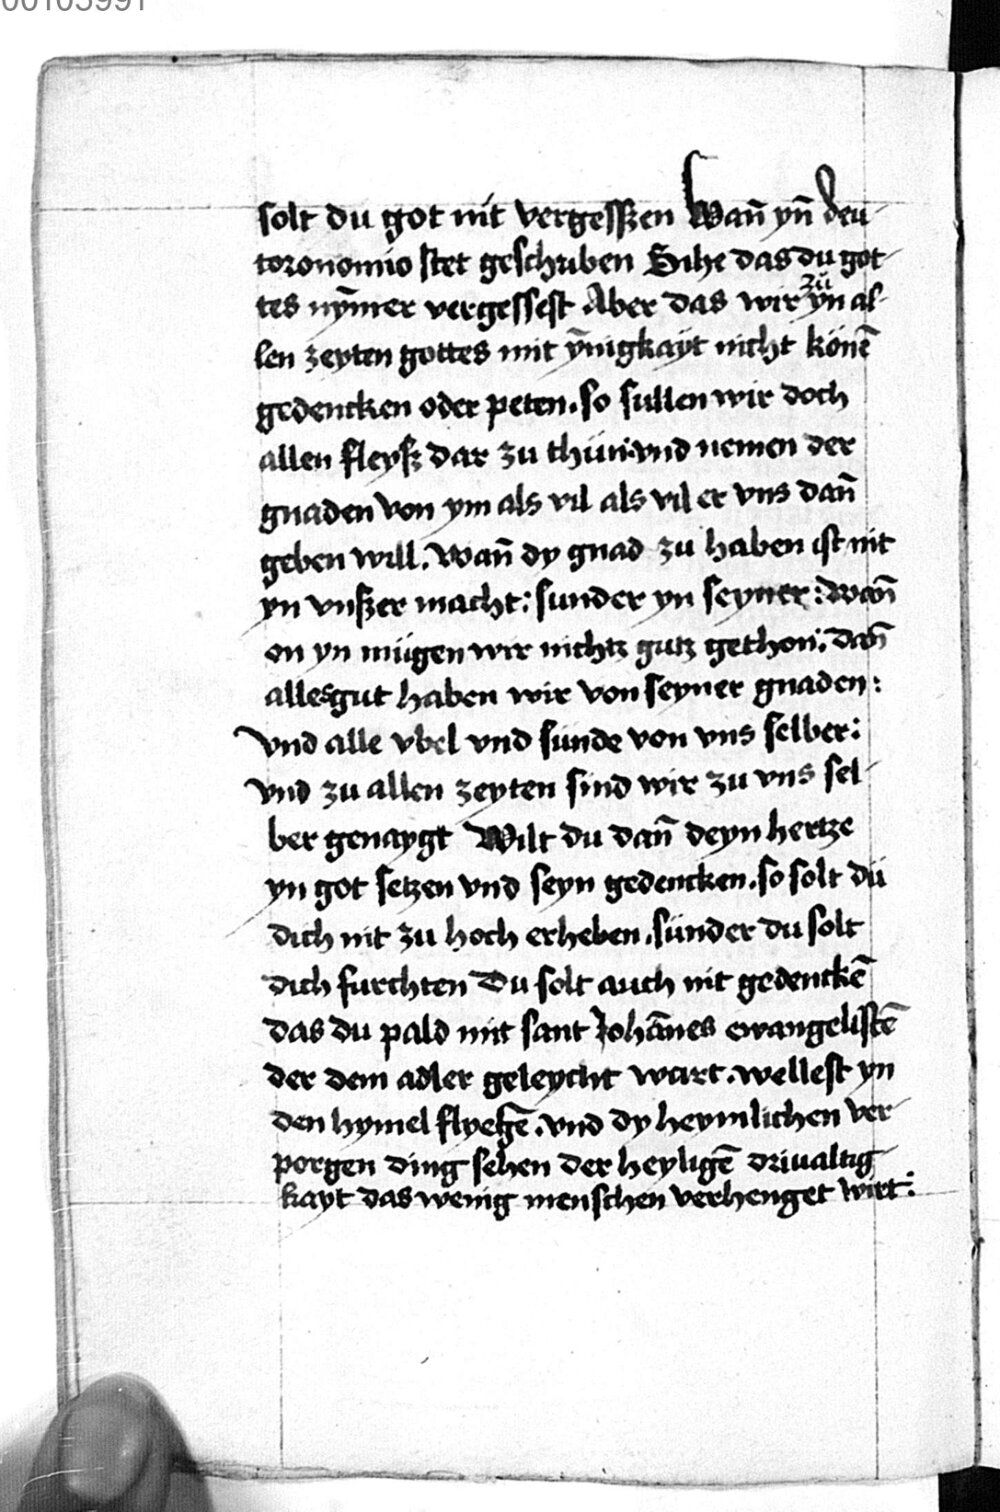 00103991
solt du got nit vergesßen Wan̄ yn̄ deu-
toronomio stet geschriben Sihe das du got-
tes nym̄er vergessest Aber das wir zu yn al-
len zeyten gottes mit ȳnigkayt nicht könē
gedencken oder peten. so sullen wir doch
allen fleysz dar zu thün. vnd nemen der
gnaden von ym als vil als vil er vns dan̄
geben will. Wan̄ dy gnad zu haben ist nit
yn vnszer macht: sunder yn seyner: Wan̄
on yn mügen wir nichtz gutz gethon: dan̄
alles gut haben wir von seyner gnaden:
Vnd alle vbel vnd sünde von vns selber:
Vnd zu allen zeyten sind wir zu vns sel-
ber genaygt Wilt du dan̄ deyn hertze
yn got setzen vnd seyn gedencken. so solt dü
dich nit zu hoch erheben. sünder du solt
dich furchten Du solt auch nit gedenckē
das du pald mit sant Johānes ewangelistē
der dem adler geleycht wart. wellest yn
den hymel flyegē. vnd dy heymlichen ver-
porgen ding sehen der heyligē driualtig-
kayt das wenig menschen verhenget wirt: